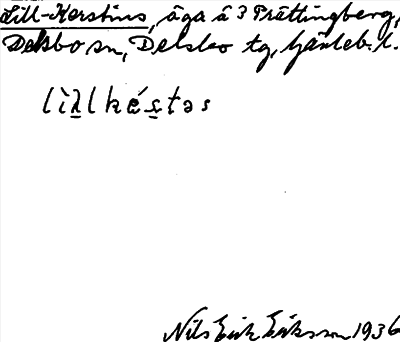 Lill-Kerstins, äga å 3 Prättingberg,
Delsbo sn, Delsbo tg, Gävleb. l.
lìλlkéstəs
Nils Erik Eriksson 1936